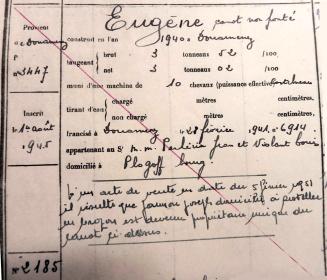 Eugène canot non ponté
Provient
Douarnenez
construit en l'an 1940 à Douarnenez
F°
n° 3447
jaugeant
brut 3 tonneaux 52 /100
net 3 tonneaux 02 /100
muni d'une machine de 10 chevaux (puissance effective)
tirant d'eau
chargé mètres centimètres,
non chargé mètres centimètres,
Inscrit
le 1er août
1945
francisé à Douarnenez le 28 février 1941 n° 6914
appartenant au Sr A. M. Jean et
domicilié à Plogoff
un acte de vente en date du 5 1951
il résulte que Joseph domicilié à
en est devenu propriétaire unique du
canot ci-dessus.
N° 2185